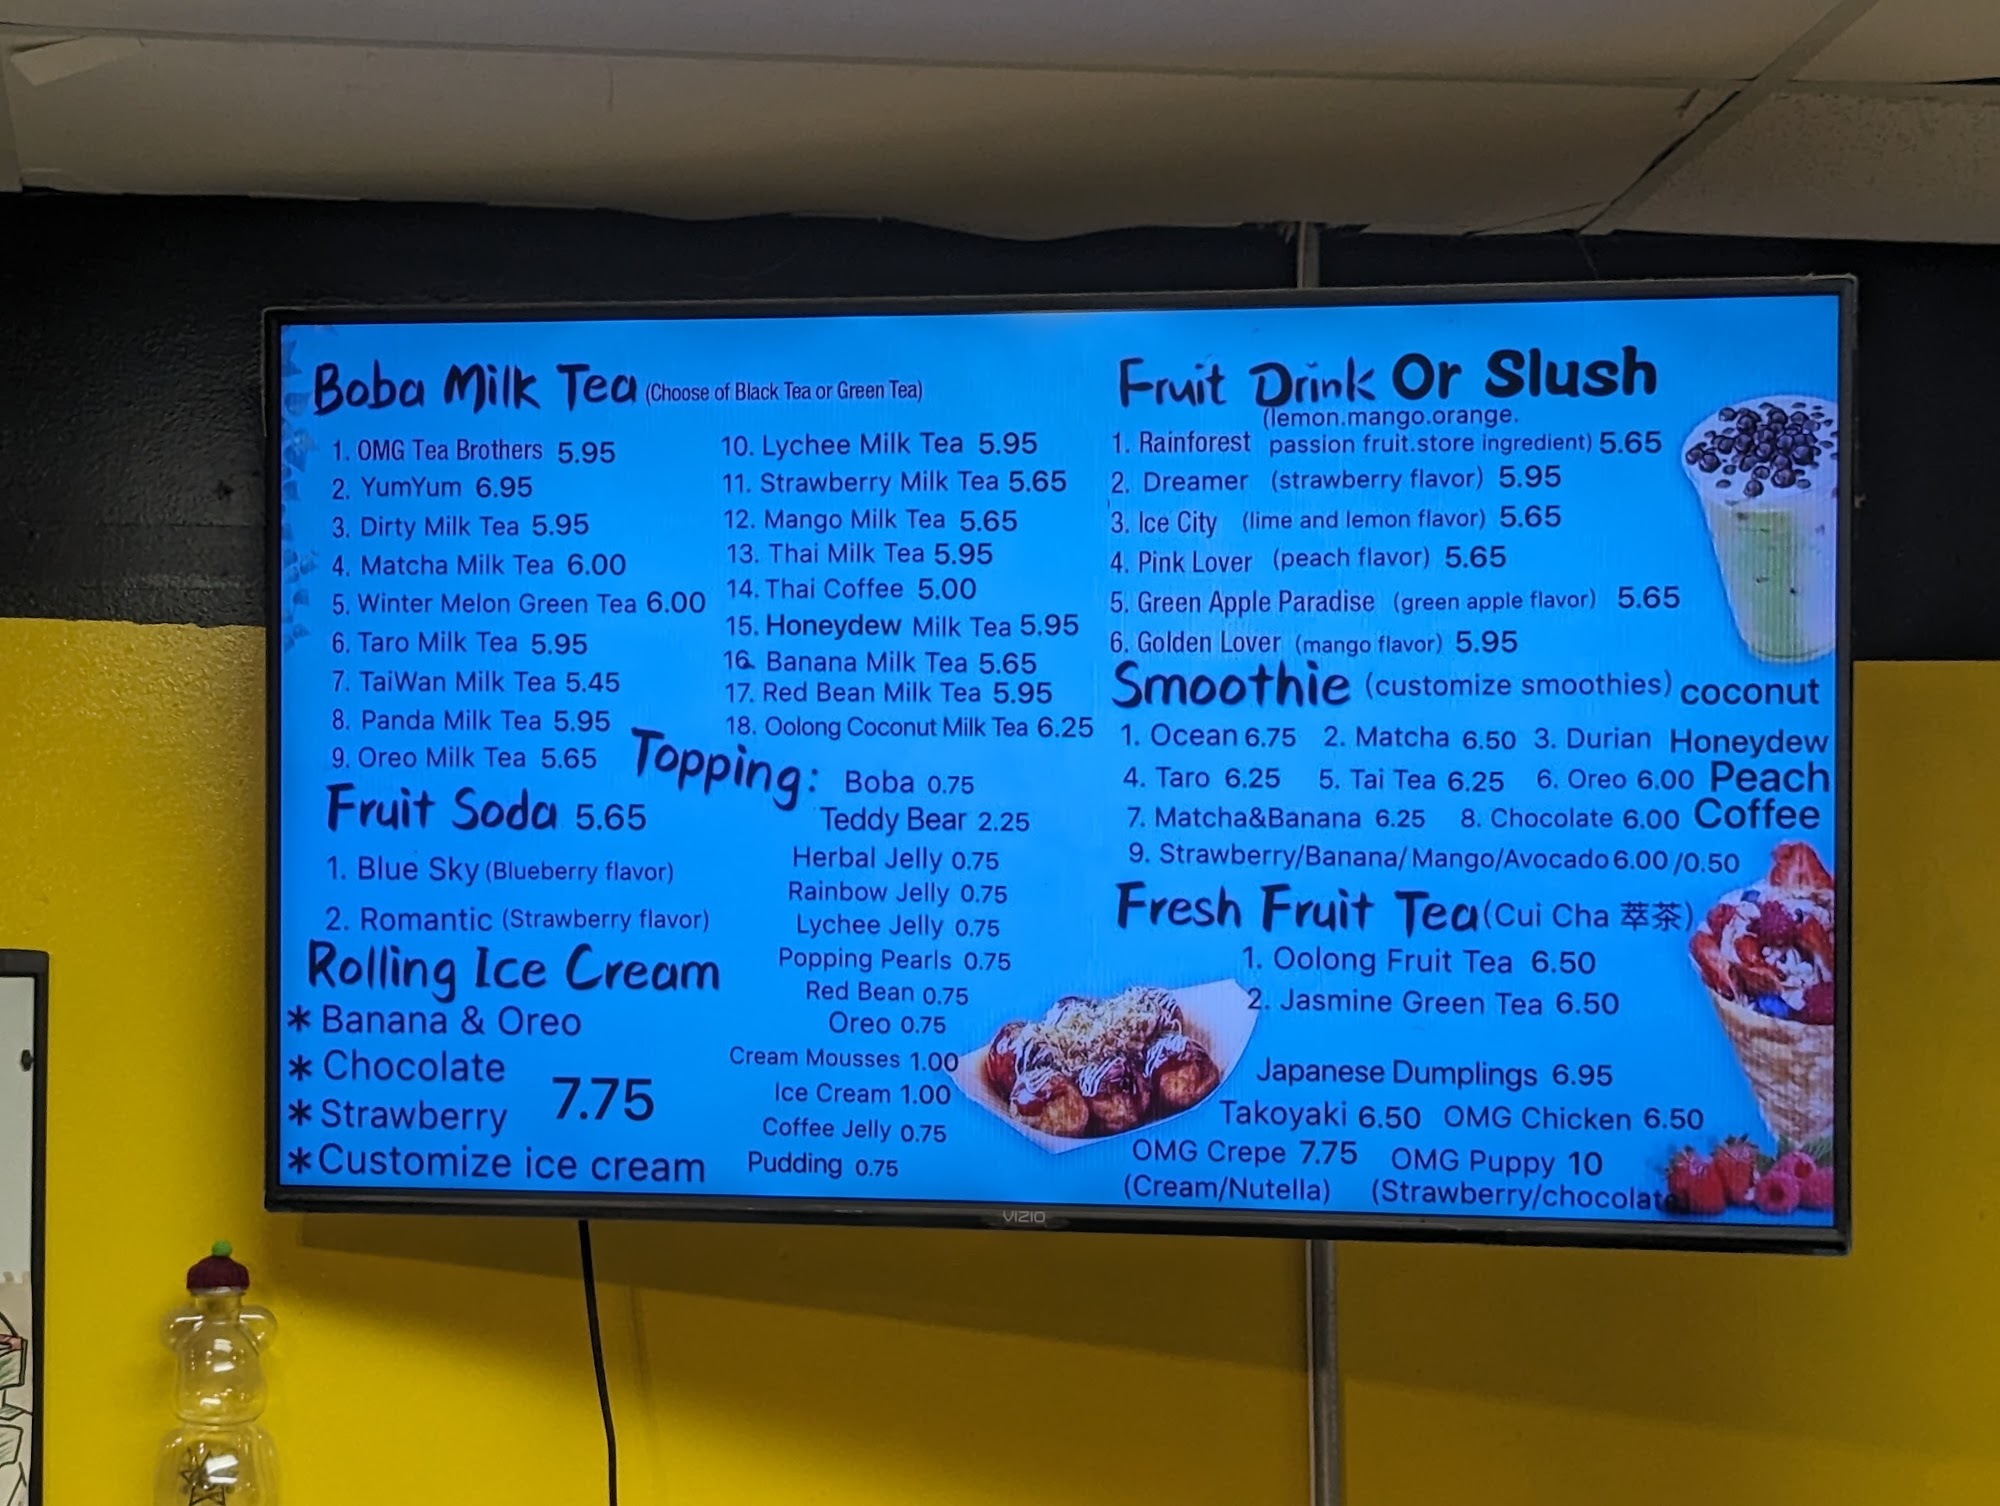 Boba Milk Tea (Choose of Black Tea or Green Tea)
1. OMG Tea Brothers 5.95
2. YumYum 6.95
3. Dirty Milk Tea 5.95
4. Matcha Milk Tea 6.00
5. Winter Melon Green Tea 6.00
6. Taro Milk Tea 5.95
7. TaiWan Milk Tea 5.45
8. Panda Milk Tea 5.95
9. Oreo Milk Tea 5.65
10. Lychee Milk Tea 5.95
11. Strawberry Milk Tea 5.65
12. Mango Milk Tea 5.65
13. Thai Milk Tea 5.95
14. Thai Coffee 5.00
15. Honeydew Milk Tea 5.95
16. Banana Milk Tea 5.65
17. Red Bean Milk Tea 5.95
18. Oolong Coconut Milk Tea 6.25
Fruit Soda 5.65
1. Blue Sky (Blueberry flavor)
2. Romantic (Strawberry flavor)
Rolling Ice Cream
* Banana & Oreo
* Chocolate
* Strawberry
7.75
* Customize ice cream
Topping:
Boba 0.75
Teddy Bear 2.25
Herbal Jelly 0.75
Rainbow Jelly 0.75
Lychee Jelly 0.75
Popping Pearls 0.75
Red Bean 0.75
Oreo 0.75
Cream Mousses 1.00
Ice Cream 1.00
Coffee Jelly 0.75
Pudding 0.75
Fruit Drink Or Slush
(lemon.mango.orange.
1. Rainforest passion fruit.store ingredient) 5.65
2. Dreamer (strawberry flavor) 5.95
3. Ice City (lime and lemon flavor) 5.65
4. Pink Lover (peach flavor) 5.65
5. Green Apple Paradise (green apple flavor) 5.65
6. Golden Lover (mango flavor) 5.95
Smoothie (customize smoothies) coconut
1. Ocean 6.75 2. Matcha 6.50 3. Durian Honeydew
4. Taro 6.25 5. Tai Tea 6.25 6. Oreo 6.00 Peach
7. Matcha&Banana 6.25 8. Chocolate 6.00 Coffee
9. Strawberry/Banana/Mango/Avocado 6.00/0.50
Fresh Fruit Tea (Cui Cha 萃茶)
1. Oolong Fruit Tea 6.50
2. Jasmine Green Tea 6.50
Japanese Dumplings 6.95
Takoyaki 6.50 OMG Chicken 6.50
OMG Crepe 7.75 OMG Puppy 10
(Cream/Nutella) (Strawberry/chocolate
VIZIO